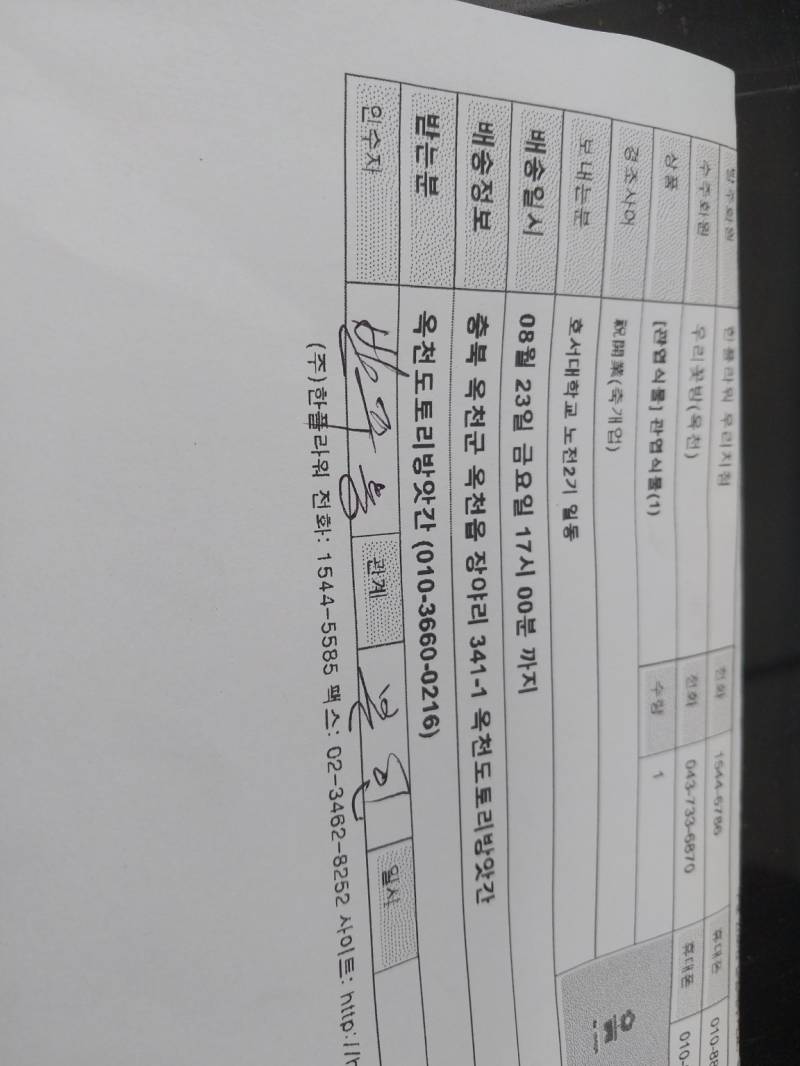 발주회원 한플라워 우리지점 전화 1544-6786 휴대폰 010-88
수주회원 우리꽃방(옥천) 전화 043-733-6870 휴대폰 010-
상품 [관엽식물] 관엽식물(1) 수량 1
경조사어 祝開業(축개업)
보내는분 호서대학교 노전2기 일동
배송일시 08월 23일 금요일 17시 00분 까지
배송정보 충북 옥천군 옥천읍 장야리 341-1 옥천도토리방앗간
받는분 옥천도토리방앗간 (010-3660-0216)
인수자 관계 본인 일시
(주)한플라워 전화: 1544-5585 팩스: 02-3462-8252 사이트: http://h